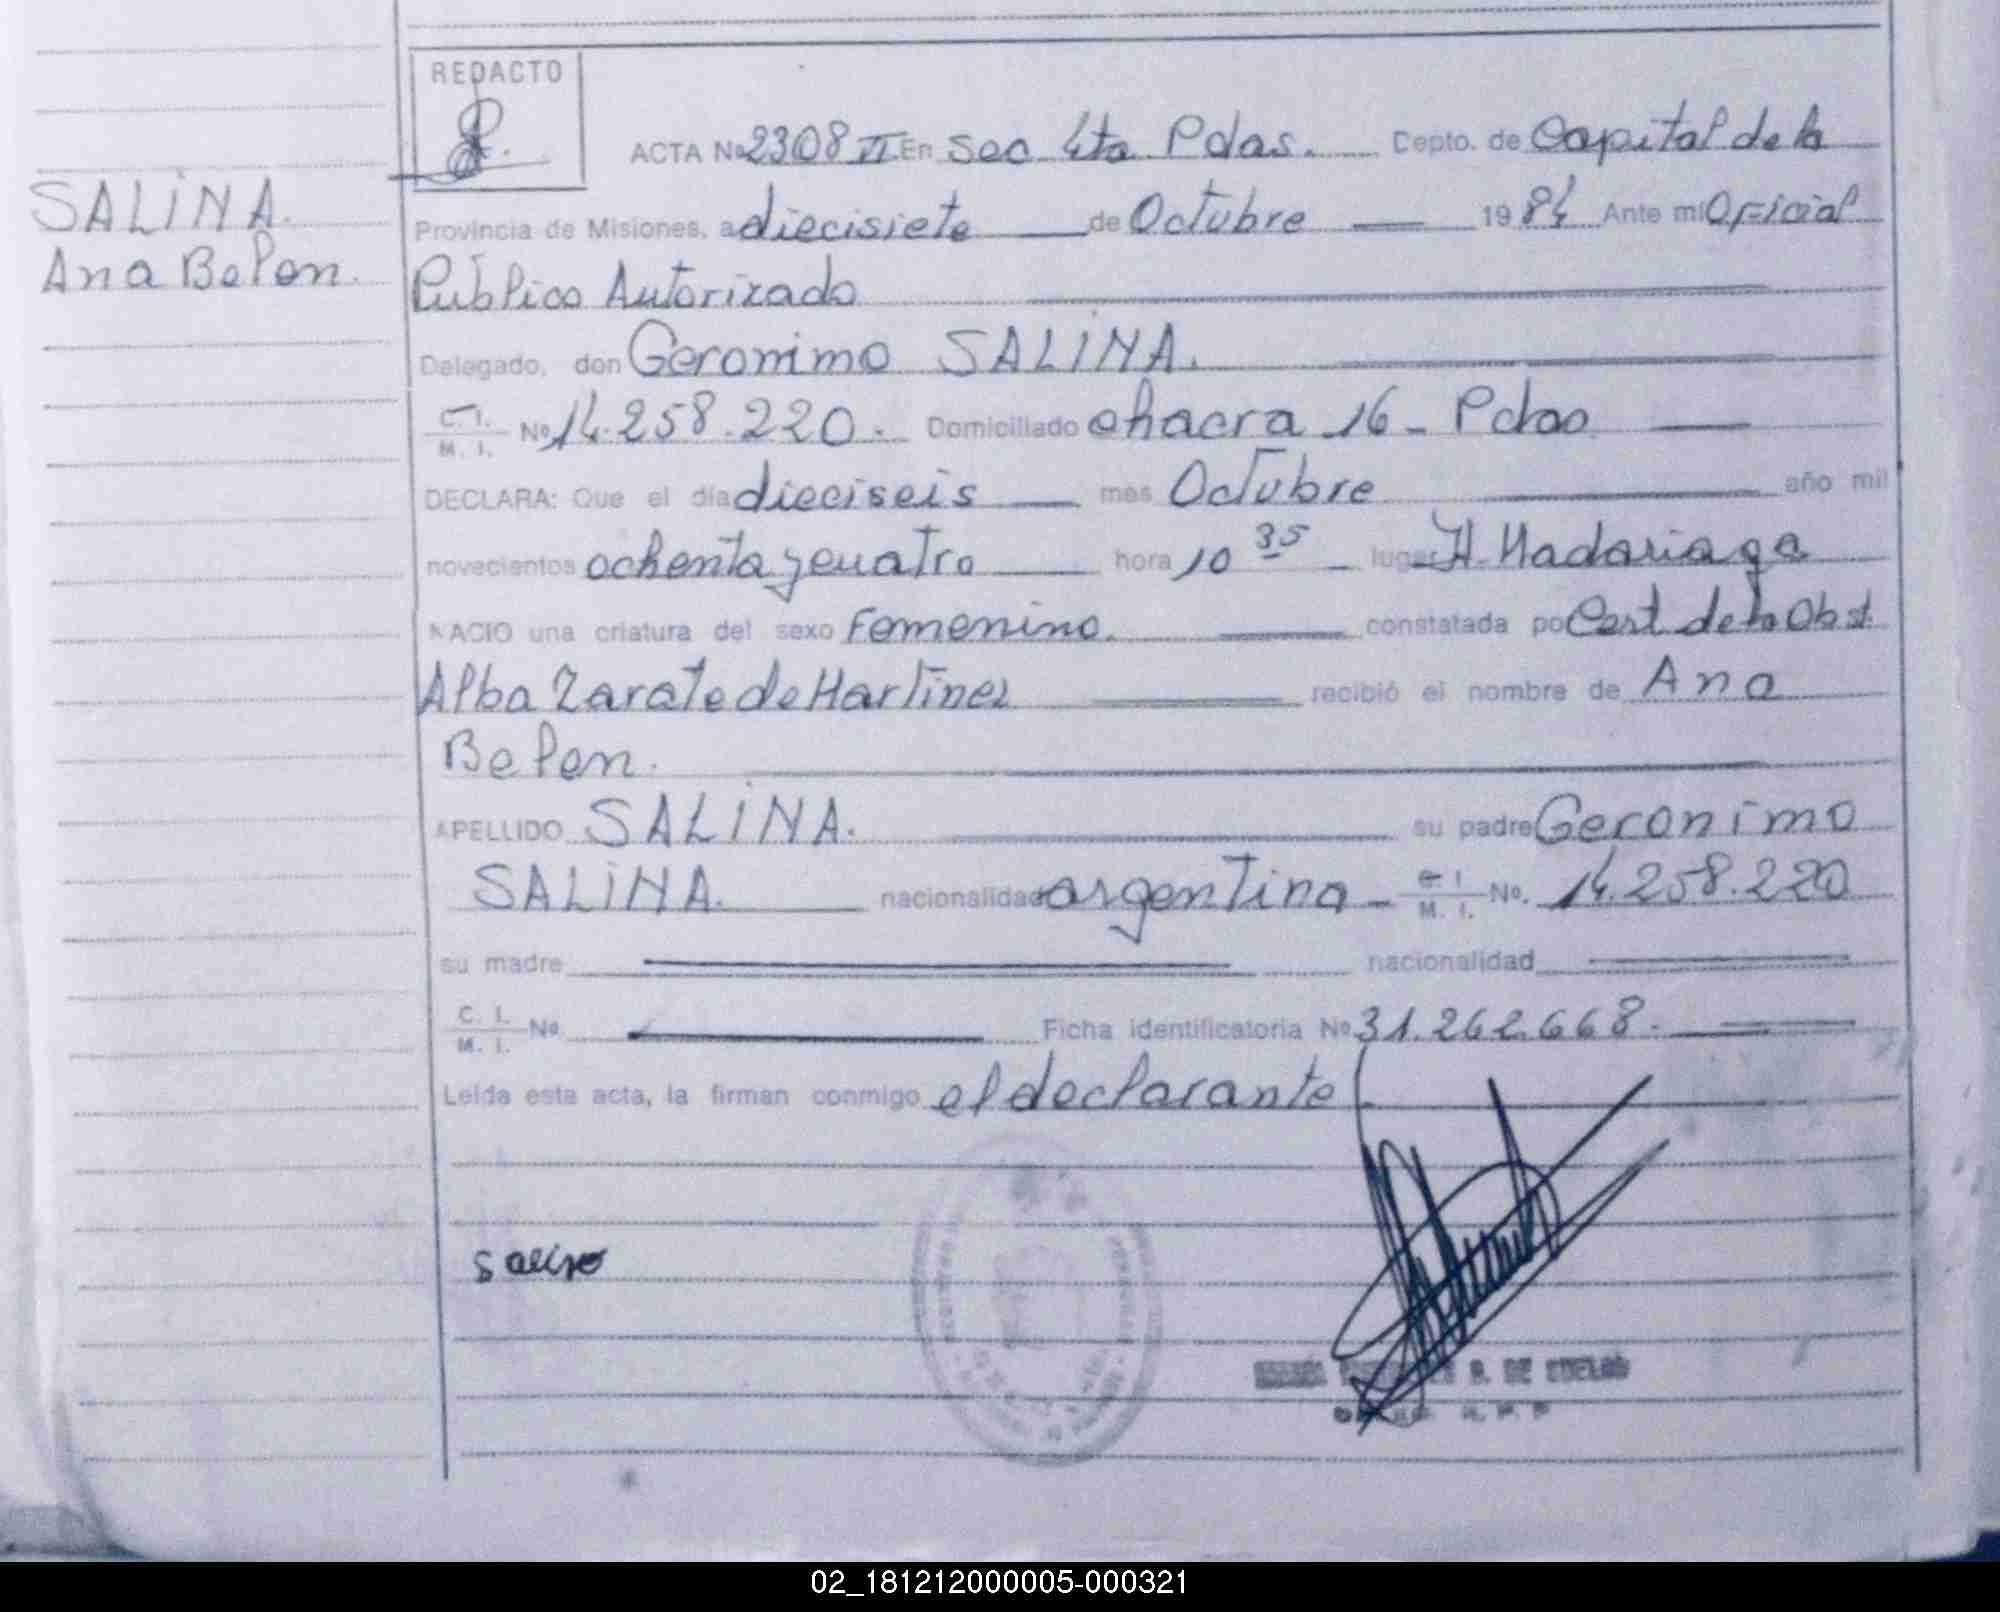 REDACTO
ACTA Nº 2308 VI En Sec 4ta Pdas. Depto. de Capital de la
SALINA.
Provincia de Misiones, a diecisiete de Octubre 1984 Ante mi Oficial
Ana Belen.
Público Autorizado
Delegado, don Geronimo SALINA.
C. I. M. I. Nº 14.258.220. Domiciliado chacra 16 - Pdas
DECLARA: Que el día dieciseis mes Octubre año mil
novecientos ochenta y cuatro hora 10 35 lugar H. Madariaga
NACIO una criatura del sexo Femenino. constatada por Cert de la Obst.
Alba Zarate de Martinez recibió el nombre de Ana
Belen.
APELLIDO SALINA. su padre Geronimo
SALINA. nacionalidad argentina - C. I. M. I. No. 14.258.220
su madre nacionalidad
C. I. M. I. No. Ficha identificatoria Nº 31.262.668.
Leída esta acta, la firman conmigo el declarante
DE
02_181212000005-000321